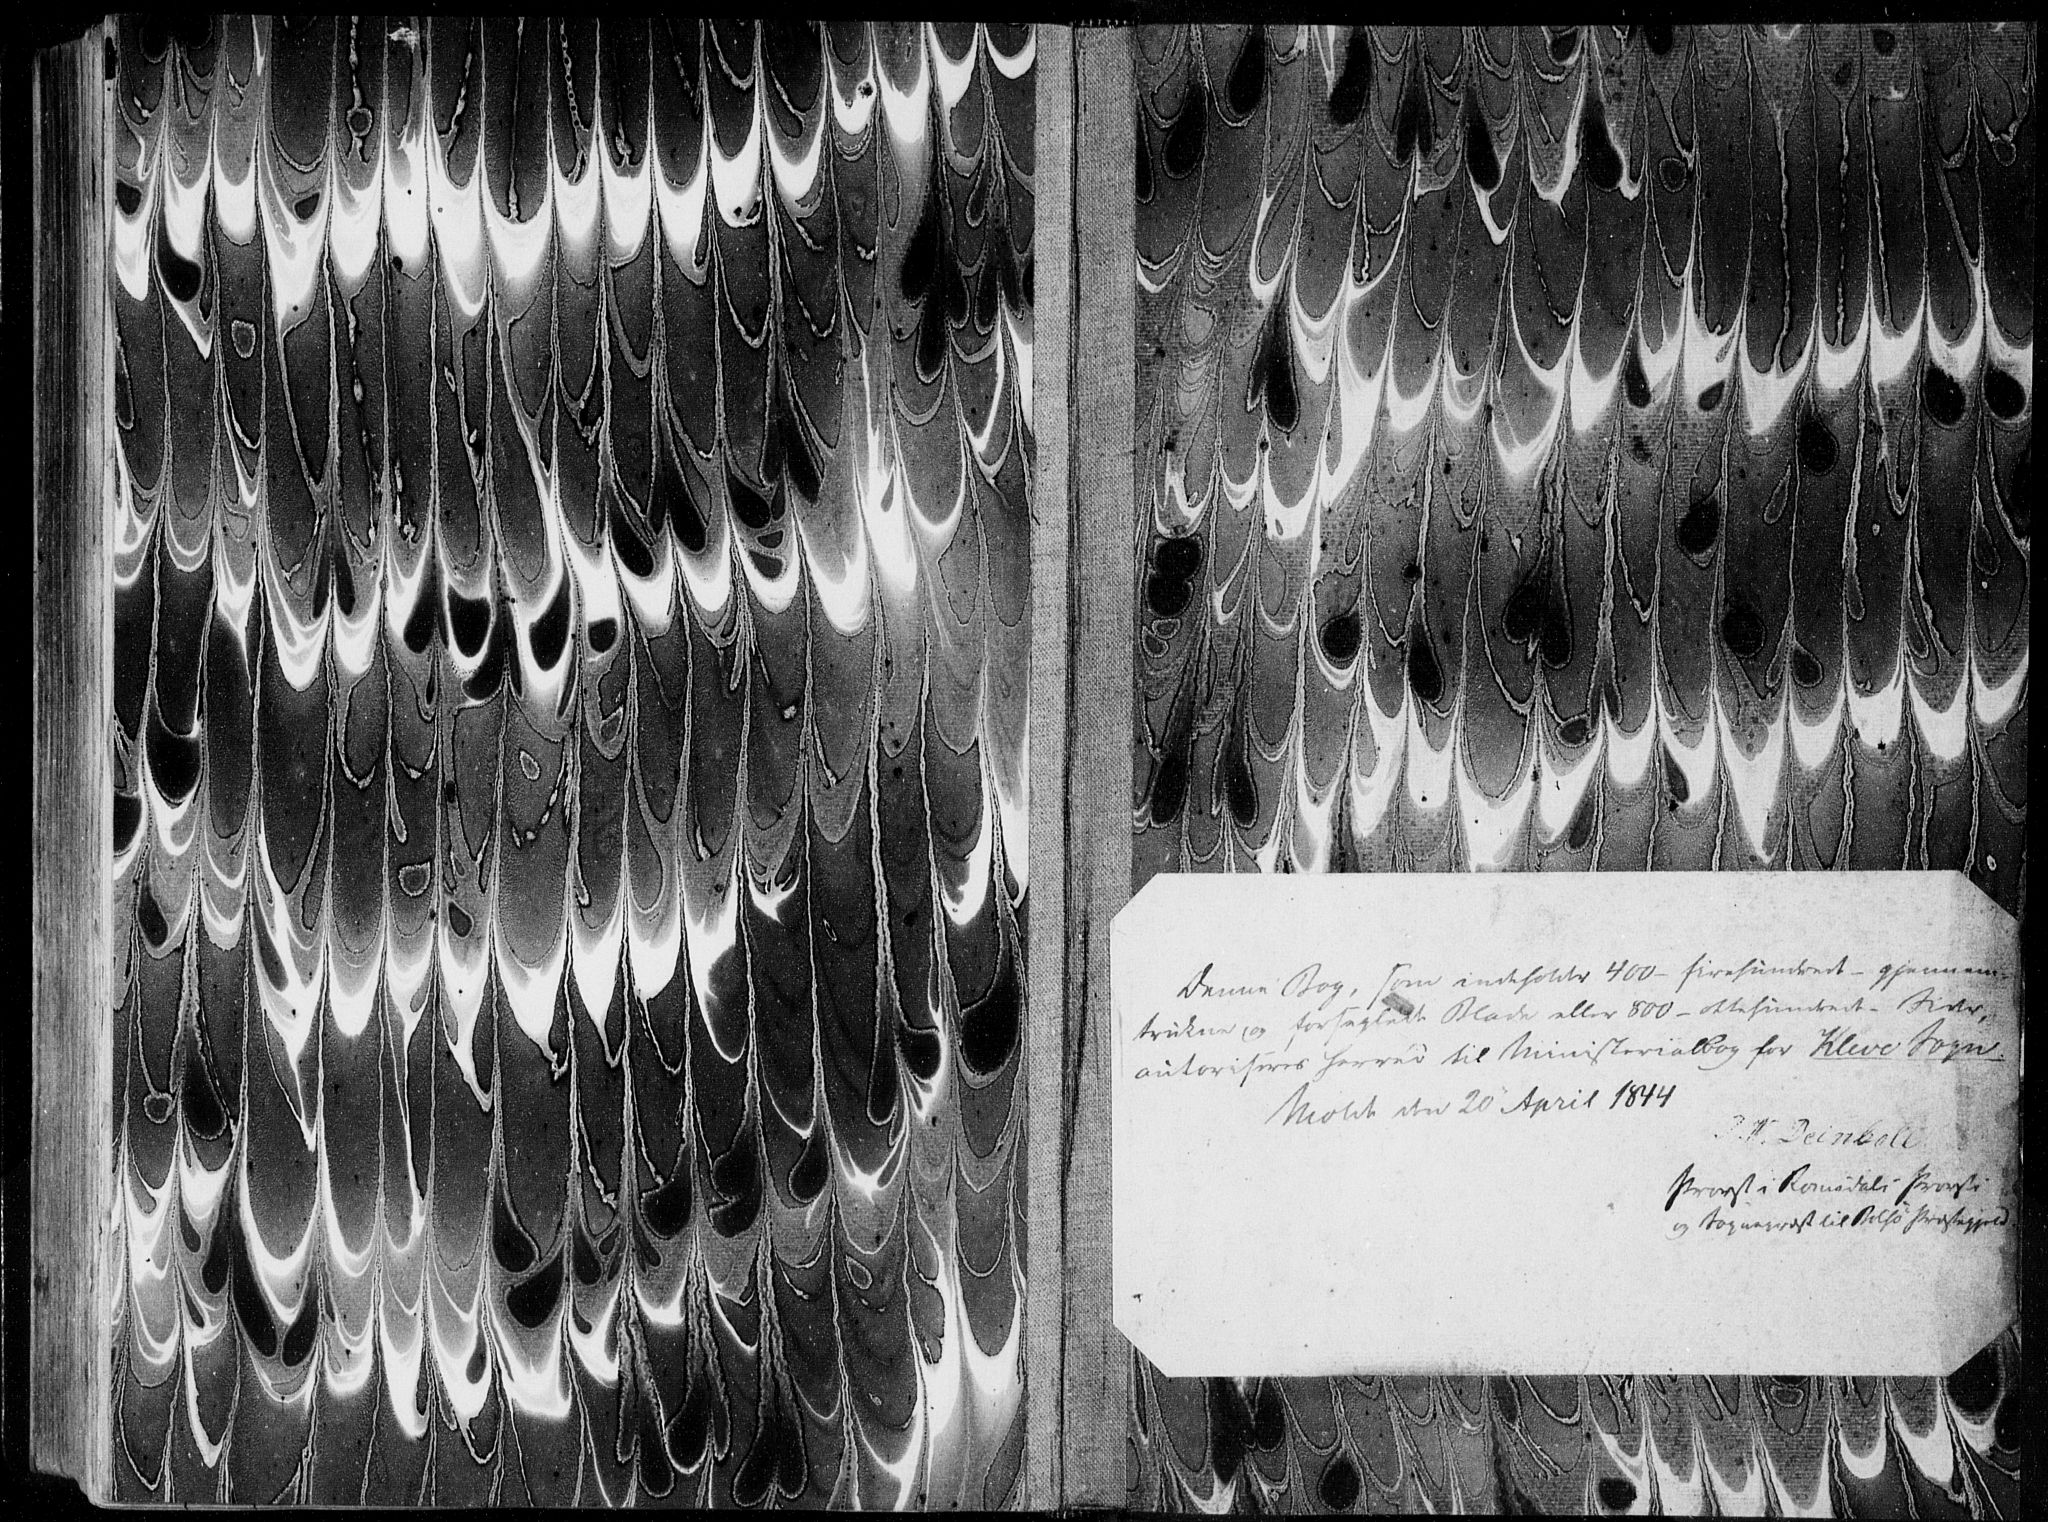 Denne Bog, som indeholder 400 - firehundrede - gjennem-
trukne og forseglede Blade eller 800 - ottehundrede - Sider,
autoriseres herved til Ministerialbog for Kleve Sogn.
Molde den 20 April 1844
Deinboll
Provst i Romsdals Provsti
og Sognepræst til Bolsø Præstegjeld